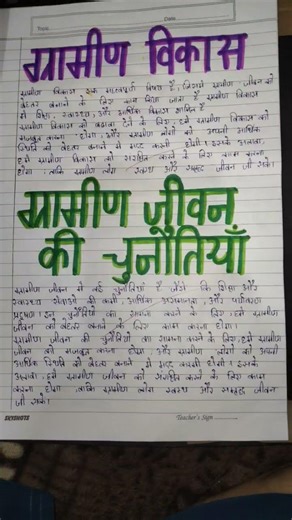 Topic
Date
ग्रामीण विकास
ग्रामीण विकास एक महत्वपूर्ण विषय है, जिसमें ग्रामीण जीवन को
बेहतर बनाने के लिए काम किया जाता है ग्रामीण विकास
में शिक्षा, स्वास्थ्य, और आर्थिक विकास शामिल है
ग्रामीण विकास को बढ़ावा देने के लिए, हमें ग्रामीण विकास को
मजबूत करना होगा, और ग्रामीण लोगों को अपनी आर्थिक
स्थिति को बेहतर बनाने में मदद करनी होगी। इसके अलावा,
हमें ग्रामीण विकास को संरक्षित करने के लिए काम करना
होगा, ताकि ग्रामीण लोग स्वस्थ और समृद्ध जीवन जी सकें।
ग्रामीण जीवन
की चुनौतियाँ
ग्रामीण जीवन में कई चुनौतियाँ हैं जैसे कि शिक्षा और
स्वास्थ्य सेवाओं की कमी, आर्थिक असमानता, और पर्यावरण
प्रदूषण। इन चुनौतियों का सामना करने के लिए, हमें ग्रामीण
जीवन को बेहतर बनाने के लिए काम करना होगा।
ग्रामीण जीवन की चुनौतियों का सामना करने के लिए, हमें ग्रामीण
जीवन को मजबूत करना होगा, और ग्रामीण लोगों को अपनी
आर्थिक स्थिति को बेहतर बनाने में मदद करनी होगी। इसके
अलावा, हमें ग्रामीण जीवन को संरक्षित करने के लिए काम
करना होगा, ताकि ग्रामीण लोग स्वस्थ और समृद्ध जीवन
जी सकें।
Teacher's Sign